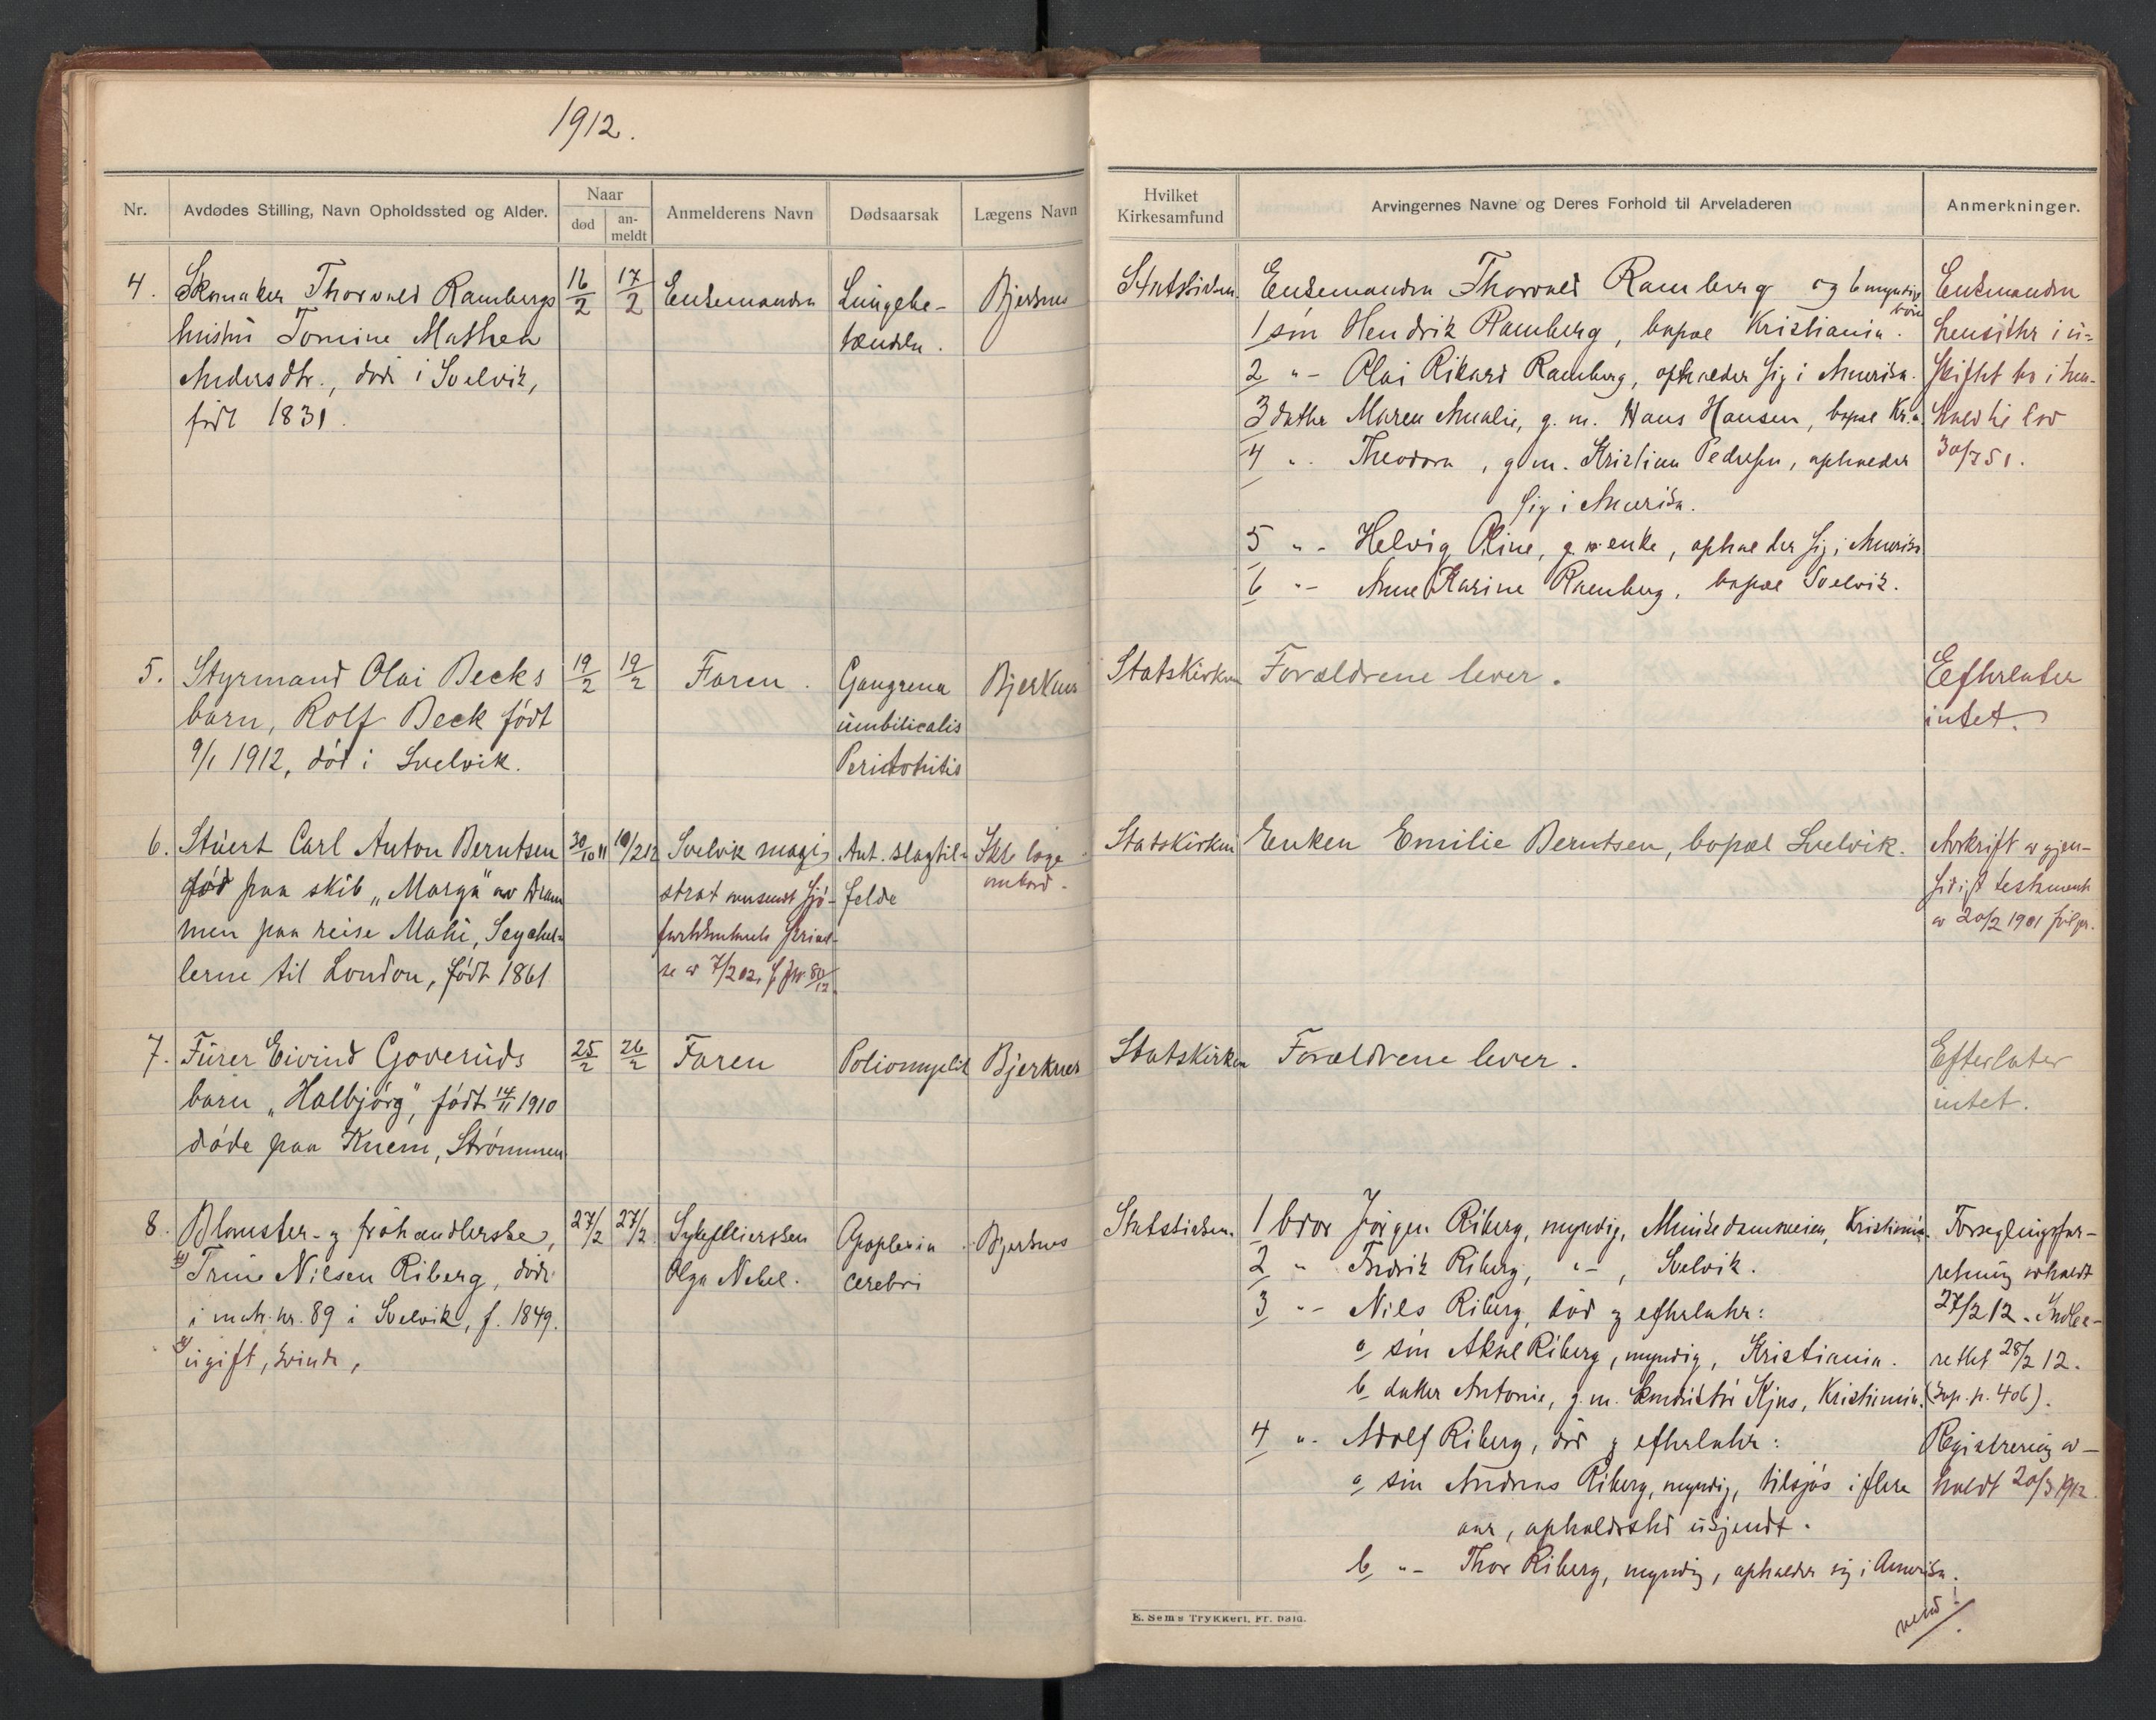 1912.
Nr.
Avdødes Stilling, Navn Opholdssted og Alder.
Naar
død
an-
meldt
Anmelderens Navn
Dødsaarsak
Lægens Navn
Hvilket
Kirkesamfund
Arvingernes Navne og Deres Forhold til Arveladeren
Anmerkninger.
4. Skomaker Thorvald Rambergs
hustru Tomine Mathea
Andersdtr., død i Svelvik,
født 1831.
16/2
17/2
Enkemanden
Lungebe-
tændelse.
Bjerknes
Statskirken.
Enkemanden Thorvald Ramberg og 6 myndige
børn
1 søn Hendrik Ramberg, bopæl Kristiania.
2 "- Olai Rikard Ramberg, opholder sig i Amerika.
3 datter Maren Amalie, g. m. Hans Hansen, bopæl Kr.a
4 "- Theodora, g. m. Kristian Pedersen, opholder
sig i Amerika.
5 "- Helvig Oline, enke, opholder sig i Amerika
6 "- Anne Karine Ramberg, bopæl Svelvik.
Enkemanden
hensitter i u-
skiftet bo i hen-
hold til lov
30/7 51.
5. Styrmand Olai Becks
barn, Rolf Beck født
9/1 1912, död i Svelvik.
19/2
19/2
Faren.
Gangrena
umbilicalis
Peritonitis
Bjerknes
Statskirken
Forældrene lever.
Efterlater
intet.
6. Stuert Carl Anton Berntsen
död paa skib „Marga" av Dram
men paa reise Mahé, Seychel-
lerne til London, født 1861
30/10 11
10/2 12
Svelvik magi-
strat
se av 7/2 02, 80/12.
Ant. slagtil-
felde
ombord.
Statskirken
Enken Emilie Berntsen, bopæl Svelvik.
Avskrift av gjen-
sidigt testament
av 20/2 1901
7. Furer Eivind Goveruds
barn „Halbjörg", født 14/11 1910
döde paa Knem, Strömmen
25/2
26/2
Faren
Poliomyelit
Bjerknes
Statskirken
Forældrene lever.
Efterlater
intet.
8. Blomster- og fröhandlerske,
Trine Nilsen Riberg, död
i matr. nr. 89 i Svelvik, f. 1849.
ugift, kvinde,
27/2
27/2
Sykepleiersken
Olga Nebel.
Apoplexia
cerebri
Bjerknes
Statskirken.
1 bror Jörgen Riberg, myndig, Munkedamsveien, Kristiania.
2 " Fredrik Riberg, "-, Svelvik.
3 "- Nils Riberg, död og efterlater:
a søn Aksel Riberg, myndig, Kristiania.
b datter Antonie, g. m. Kjus, Kristiania.
4 "- Adolf Riberg, död og efterlater:
a søn Andreas Riberg, myndig, tilsjös i flere
aar, opholdssted ukjendt.
b "- Thor Riberg, myndig, opholder sig i Amerika.
Forseglingsfor-
retning avholdt
27/2 12. Indbe-
rettet 28/2 12.
(Kop. p. 406).
Registrering av-
holdt 20/3 1912.
vend!
E. Sems Trykkeri, Fr.hald.